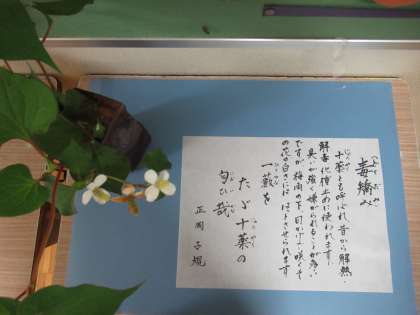 毒矯み
十薬とも呼ばれ昔から解熱・
解毒・化膿止めに使われます。
臭いが強く嫌がられることが多い
ですが、梅雨の下、日かげに咲くそ
の花の白さには はっとさせられます
一藪を
たゞ十薬の
匂ひ哉
正岡子規